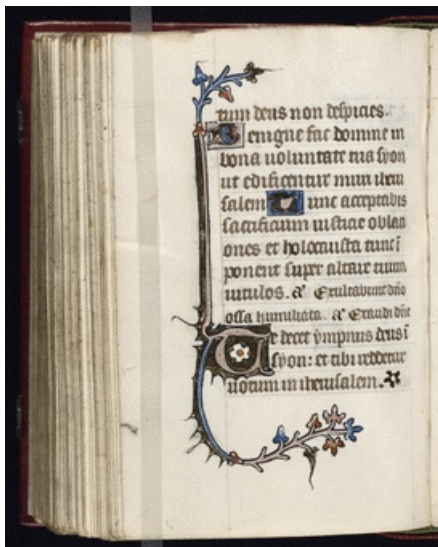 tum deus non despicies.
Benigne fac domine in
bona uoluntate tua syon
ut edificentur muri iheru
salem Tunc acceptabis
sacrificium iusticie oblaci
ones et holocausta tunc ĩ
ponent super altare tuum
uitulos. a͞ Exultabunt dño
ossa humiliata. a͞ Exaudi dñe
Te decet ympnus deus ĩ
syon: et tibi reddetur
uotum in iherusalem.